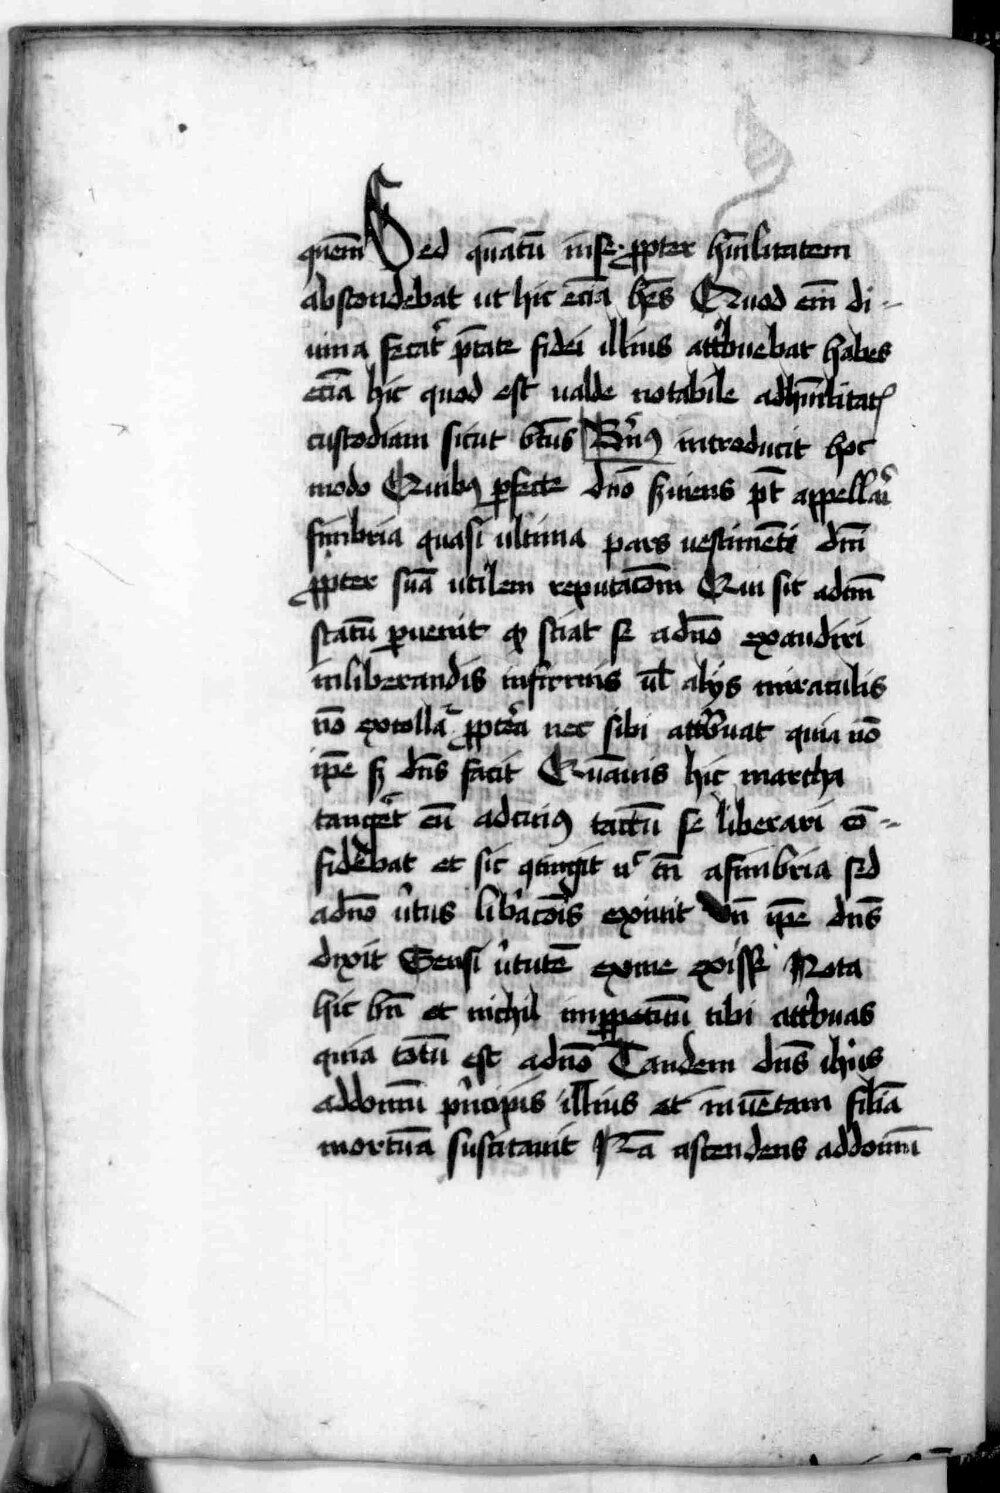 quem̄ Sed quātū inse ꝓpter hūilitatem
abscondebat ut hic ecīa hēs Quod em̄ di-
uina fecat͛ ptāte fidei illius att̃buebat habes
ecīa hic quod est ualde notabile adhūilitatꝭ
custodiam sicut btūs B͛nꝰ introducit hoc
modo Quibꝫ ꝑfecte dn̄o s͛uiens pt̄ appellai͛
fimbria quasi ultima pars uestimēti dn̄i
ꝓpter suā utilem reputacōm Qui sic adtm̄
statū ꝑuenit ꝙ sciat se adn̄o exaudiri
inliberandis infirmis ul̄ alijs miraculis
nō extollat͛ ꝓpt͛ea nec sibi att̃buat quia nō
ip̄e sꝫ dn̄s facit Quāuis hic martha
tanget͛ eū adcuiꝰ tactū se liberari cō-
fidebat et sic ꝯtingit nͨ tn̄ afimbria sed
adn̄o u͛tus lib͛acōis exiuit Vn̄ ip̄e dn̄s
dixit Sensi u͛tutē exme exisse Nota
hic bn̄ et nichil impp̄etitū tibi att̃buas
quia totū est adn̄o Tandem dn̄s ih̄us
addomū pͥncipis illius et inuētam filiā
mortuā suscitauit Nā ascendens addomū